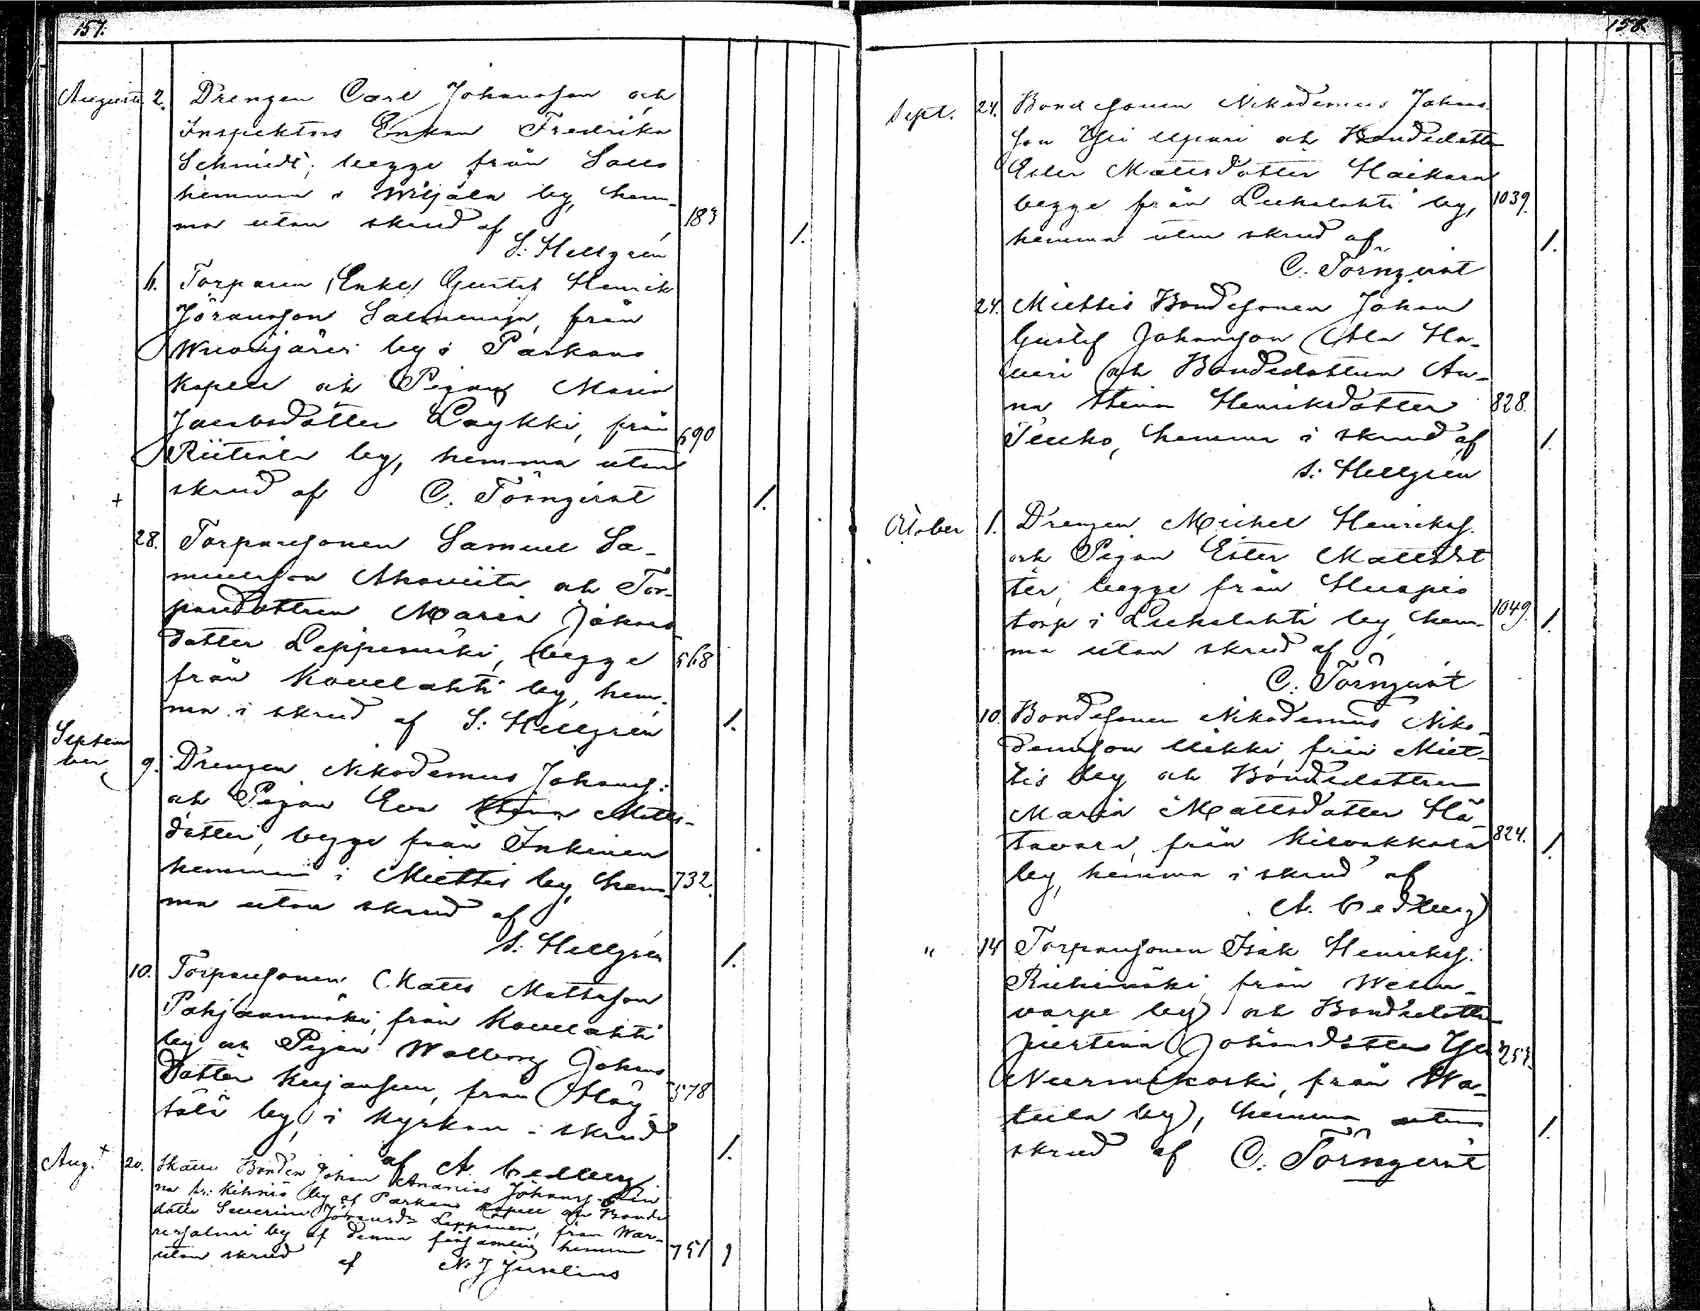 157.
Augusti 2. Drengen Carl Johansson och
Inspektors Enkan Fredrika
Schmidt, begge från
hemman i by, hem-
ma utan skrud af 183 1.
S: Hellgren
6. Torparen, Enkl. Gustaf Henrik
Jöransson Salmenoja, från
Wuorijärvi by i Parkano
kapell och Pigan Maria
Jacobsdotter Löykki, från 690
Riitiala by, hemma utan
skrud af C. Törnqvist 1.
28. Torparesonen Samuel Sa-
muelsson och Tor-
paredottren Maria Johans
dotter Leppemäki, begge 568
från Kovelahti by, hem-
ma i skrud af S: Hellgrén 1.
Septem
ber 9. Drengen Nikodemus Johanss:
och Pigan Eva Stina Matts-
dotter, begge från Inkinen
hemman i Miettis by, hem- 732.
ma utan skrud af
S: Hellgrén 1.
10. Torparesonen Matts Mattsson
Pohjanmäki, från Kovelahti
by och Pigan Walborg Johans
dotter från 578
by, i kyrkan i skrud
af A. Cedberg. 1.
Aug. 20. Bonden Johan Ananias Johanss.
fr: Kihniö by af Parkano kapell och Bonde
dottr Severina Johansdr Leppänen, från
by af denna församling hemma
utan skrud af N. J. Juselius 751 1
158.
Sept. 24. Bondesonen Nikodemus Johans
son Yli och Bondedottr
Ester Mattsdotter Haikara
begge från Luhalahti by, 1039.
hemma utan skrud af 1.
C. Törnqvist
24. Miettis Bondesonen Johan
Gustaf Johansson Ala Ha-
veri och Bondedottren An-
na Stina Henriksdotter 828.
hemma i skrud af 1.
S: Hellgrén
October 1. Drengen Michel Henrikss.
och Pigan Ester Mattsdot
ter, begge från
torp i Luhalahti by, hem- 1049. 1.
ma utan skrud af
C. Törnqvist
10. Bondesonen Nikodemus Niko-
demusson Mikki, från Miet-
tis by och Bondedottren
Maria Mattsdotter Hä-
tavara, från Kilvakkala 824. 1.
by, hemma i skrud af
A. Cedberg
" 14 Torparesonen Isak Henrikss.
Riihimäki från
by och Bondedottr
Justina Johansdotter Yli
från Wa- 253.
tula by, hemma utan 1.
skrud af C. Törnqvist